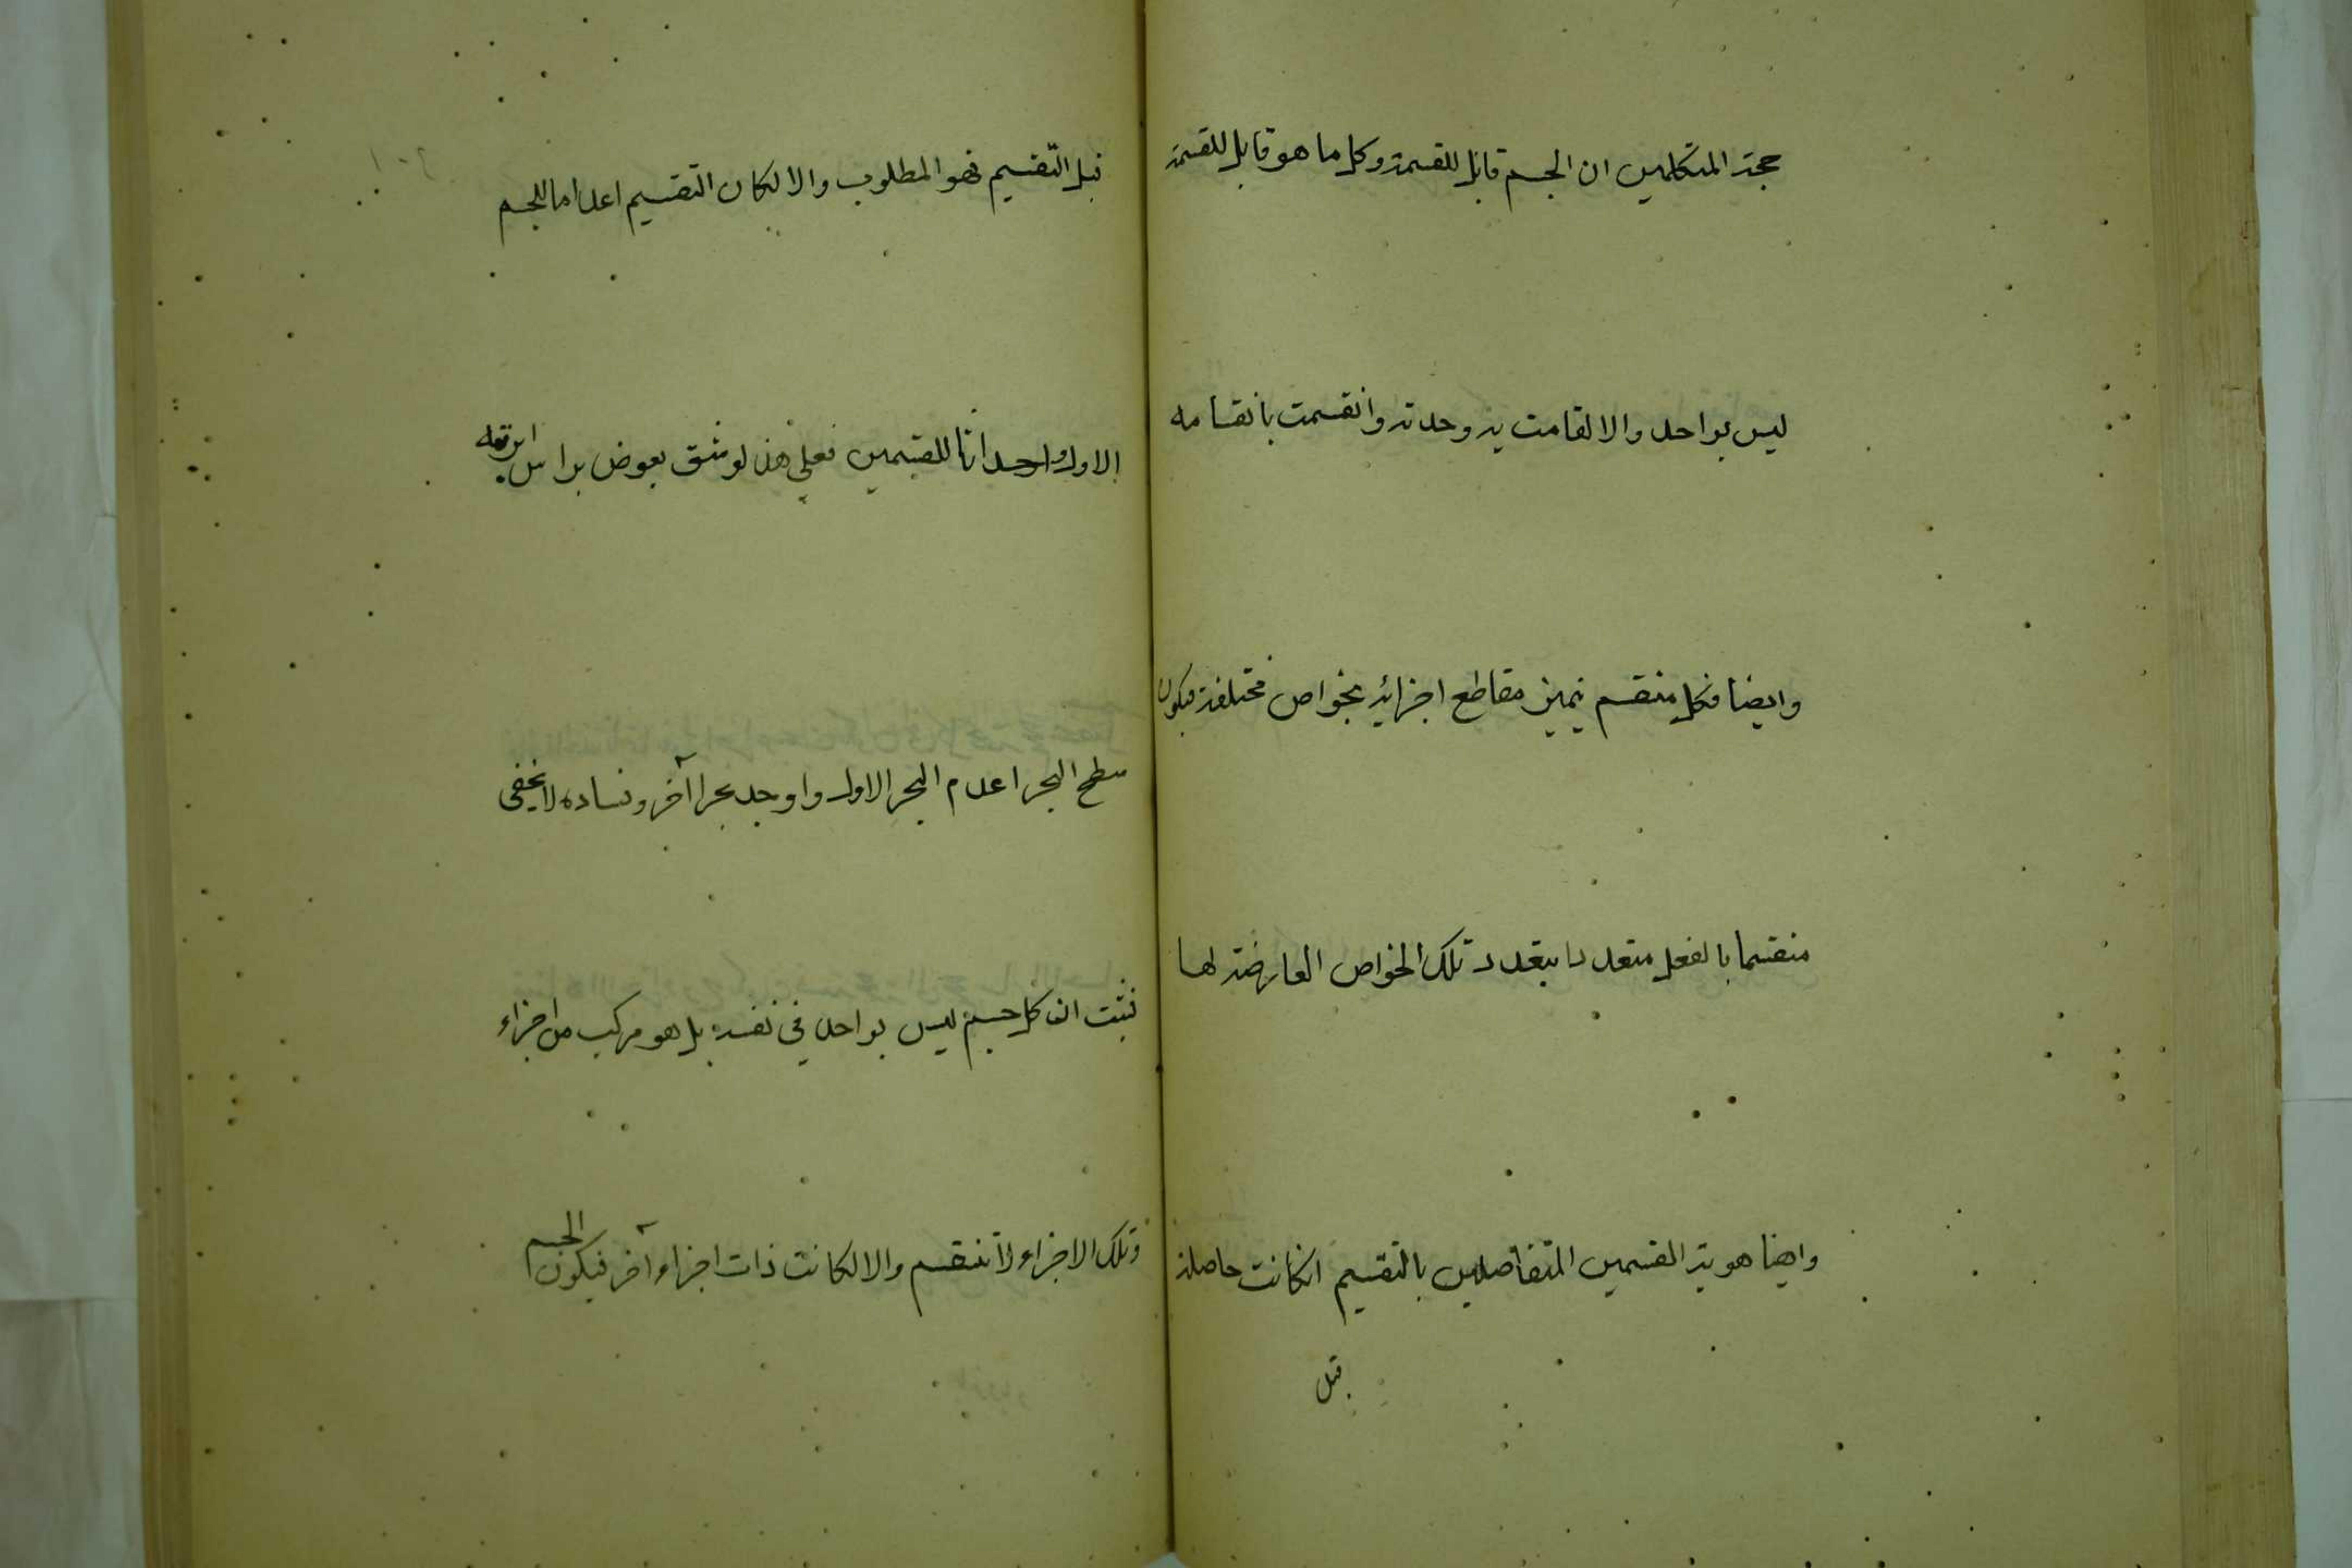 حجة المتكلمين ان الجسم قابل للقسمة وكل ما هو قابل للقسمة
ليس بواحد والا لقامت به وحدته وانقسمت بانقسامه
وايضا فكل منقسم يتميز مقاطع اجزائه بخواص مختلفة فيكون
منقسما بالفعل متعددا بتعدد تلك الخواص العارضة لها
وايضا هوية القسمين المتفاصلين بالتقسيم ان كانت حاصلة
قبل
قبل التقسيم فهو المطلوب والا لكان التقسيم اعداما للجسم
الاول واحداثا للقسمين فعلى هذا لو شق بعوض براس ابرته
سطح البحر اعدم البحر الاول واوجد بحرا آخر وفساده لا يخفى
فثبت ان كل جسم ليس بواحد في نفسه بل هو مركب من اجزاء
وتلك الاجزاء لا تنقسم والا لكانت ذات اجزاء آخر فيكون الجسم